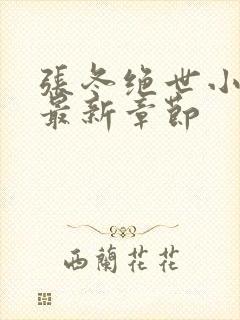 張冬绝世小
最新章節
西蘭花花